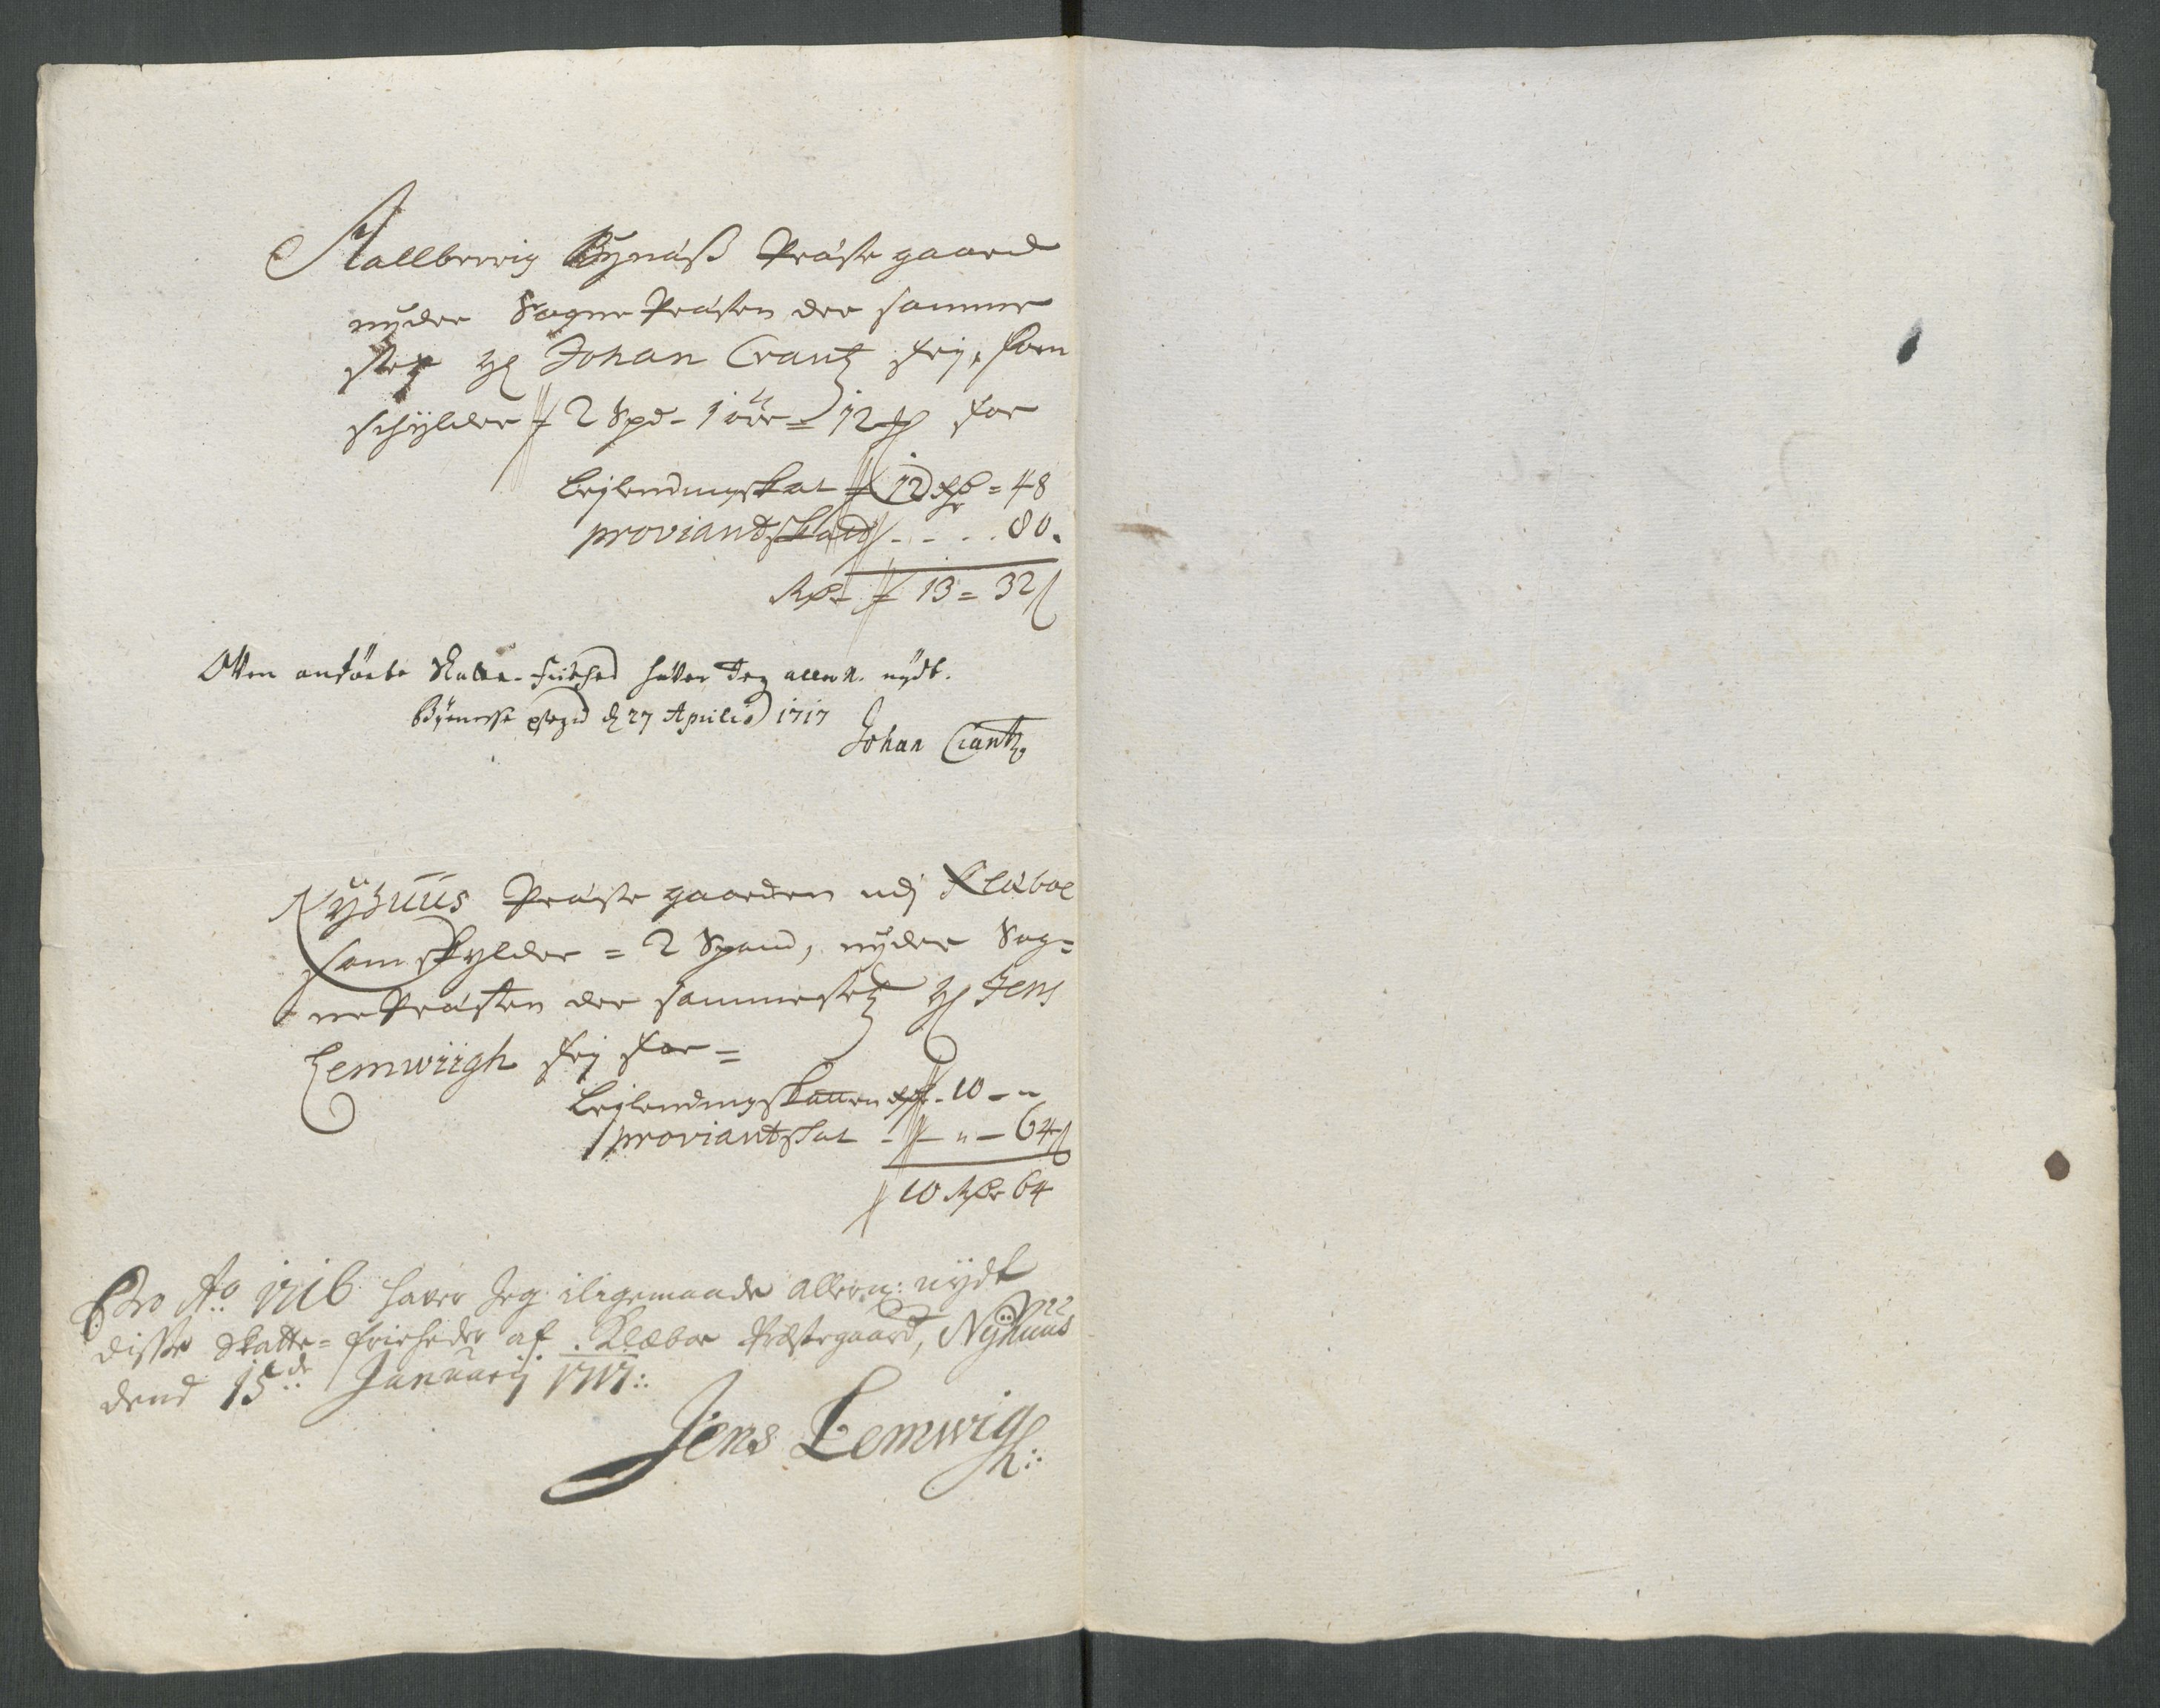 Hallberrig Bynæss Præste gaard
nyder Sogne Præsten der samme
stæz Hr Johan Crantz frj, som
schylder 2 Spd - 1 øre = 12 for
Leylendingskat 12 Rdr = 48
proviantskatt - - . . 80.
Rdr 13 = 32
Oven anførte Skatte-friehed haver Jeg allern. nydt.
Bynesse d 27 Aprilis 1717
Johan Crantz
Nyhuus Præste gaarden udj Klæboe
som skylder = 2 Spand, nyder Sog=
ne Præsten der sammestetz Hr Jens
Lemwiigh frj for =
Leylendingskatten Rdr - 10 - "
proviantskat - - " - 64
10 Rdr 64
Pro Ao 1716 haver Jeg iligemaade allern: nydt
disse Skatte=friheder af Klæboe Præstegaard, Nyhuus
dend 15de Januarij 1717.
Jens Lemwigh